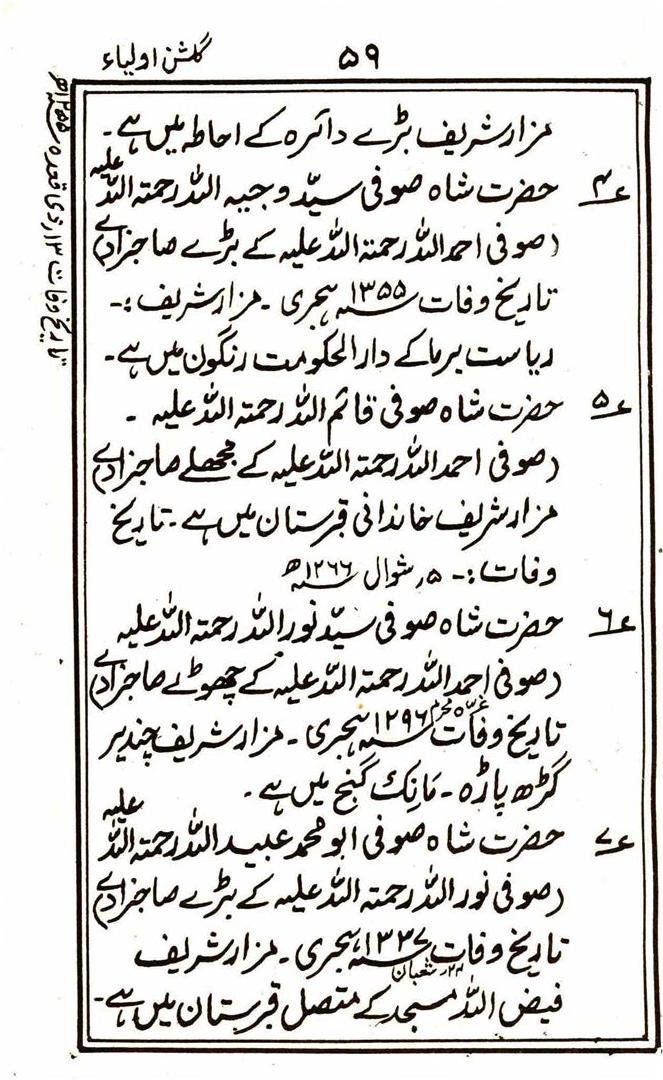 گلشن اولیاء ۵۹
مزار شریف بڑے دائرہ کے احاطہ میں ہے۔
۴؎ حضرت شاہ صوفی سیّد وجیہ اللہ رحمتہ اللہ علیہ
(صوفی احمد اللہ رحمتہ اللہ علیہ کے بڑے صاحبزادے)
تاریخ وفات ۱۳۵۵؁ ہجری ۔ مزار شریف :۔
ریاست برما کے دار الحکومت رنگون میں ہے۔
۵؎ حضرت شاہ صوفی قائم اللہ رحمتہ اللہ علیہ ۔
(صوفی احمد اللہ رحمتہ اللہ علیہ کے مجھلے صاحبزادے)
مزار شریف خاندانی قبرستان میں ہے ۔ تاریخ
وفات :۔ ۵؍ شوال ۱۲۶۶؁ھ
۶؎ حضرت شاہ صوفی سیّد نور اللہ رحمتہ اللہ علیہ
(صوفی احمد اللہ رحمتہ اللہ علیہ کے چھوٹے صاحبزادے)
تاریخ وفات غرّہ محرم ۱۲۹۶؁ ہجری ۔ مزار شریف چندیر
گڑھ پاڑہ ۔ مانِک گنج میں ہے ۔
۷؎ حضرت شاہ صوفی ابو محمد عبید اللہ رحمتہ اللہ علیہ
(صوفی نور اللہ رحمتہ اللہ علیہ کے بڑے صاحبزادے)
تاریخ وفات ۲۲؍ شعبان ۱۳۳۷؁ ہجری ۔ مزار شریف
فیض اللہ مسجد کے متصل قبرستان میں ہے ۔
تاریخ وفات ۱۳؍ ذی قعدہ ۱۲۵۵؁ھ